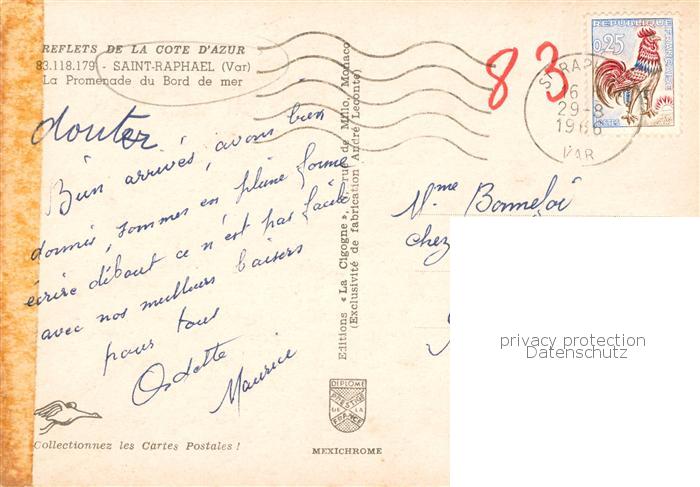 REFLETS DE LA COTE D'AZUR
83.118.179 - SAINT-RAPHAEL (Var)
La Promenade du Bord de mer
douter
Bien arrivés, avons bien
dormis, sommes en pleine forme
écrire débout ce n'est pas facile
avec nos meilleurs baisers
pour tous
Odette
Maurice
Collectionnez les Cartes Postales !
Editions « La Cigogne », rue de Millo, Monaco
(Exclusivité de fabrication André Leconte)
DIPLOME
PRESTIGE
DE LA
FRANCE
MEXICHROME
83
ST RAPHAEL
16
29-8
1966
VAR
REPUBLIQUE
FRANÇAISE
0,25
POSTES
Mme Bonnefoi
chez
privacy protection
Datenschutz